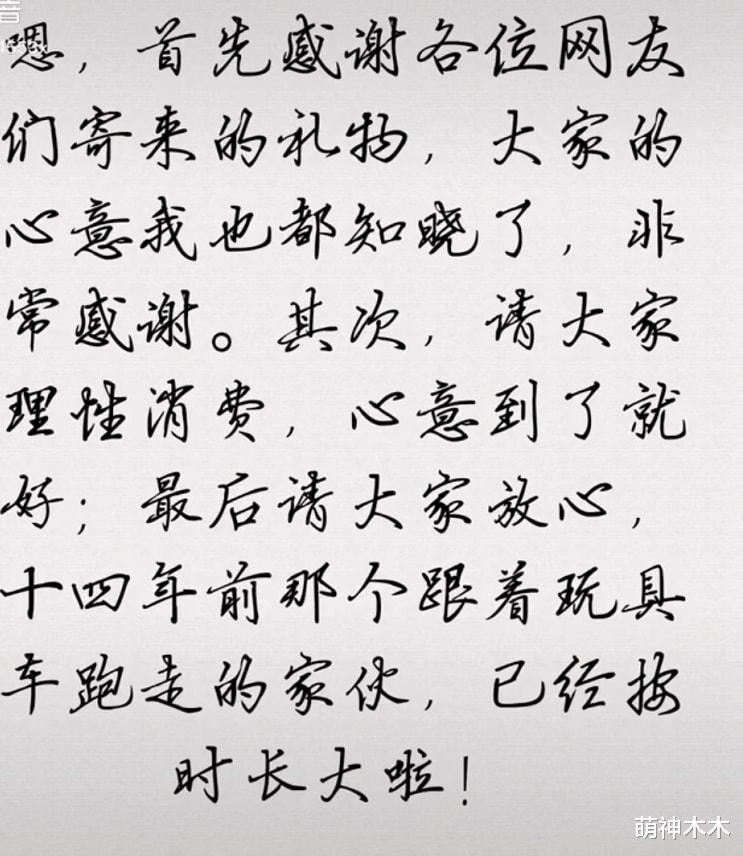 音
嗯，首先感谢各位网友
们寄来的礼物，大家的
心意我也都知晓了，非
常感谢。其次，请大家
理性消费，心意到了就
好；最后请大家放心，
十四年前那个跟着玩具
车跑走的家伙，已经按
时长大啦！
萌神木木